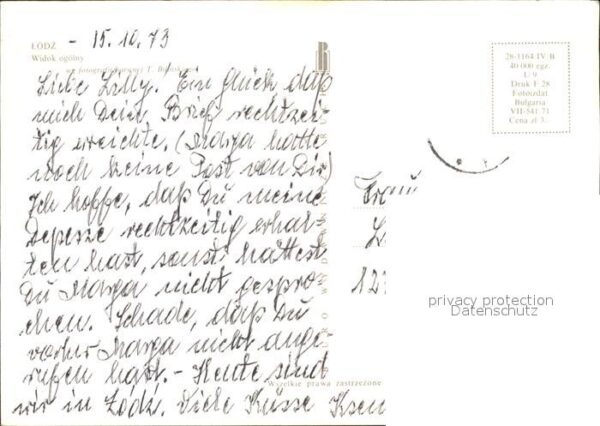 ŁÓDŹ - 15.10.73
Widok ogólny
Liebe Lilly. Ein Glück daß
mich Dein Brief rechtzei-
tig erreichte. (Marga hatte
noch keine Post von Dir)
Ich hoffe, daß Du meine
Depesze rechtzeitig erhal-
ten hast, sonst hättest
Du Marga nicht gespro-
chen. Schade, daß Du
vorher Marga nicht ange-
rufen hast. - Heute sind
wir in Łodz. Viele Küsse Ksen
Wszelkie prawa zastrzeżone
28-1164-IV/B
40 000 egz.
U 9
Druk F 28
Fotoizdat
Bulgaria
VII-541/71
Cena zł 3.-
Frau
L
12
privacy protection
Datenschutz